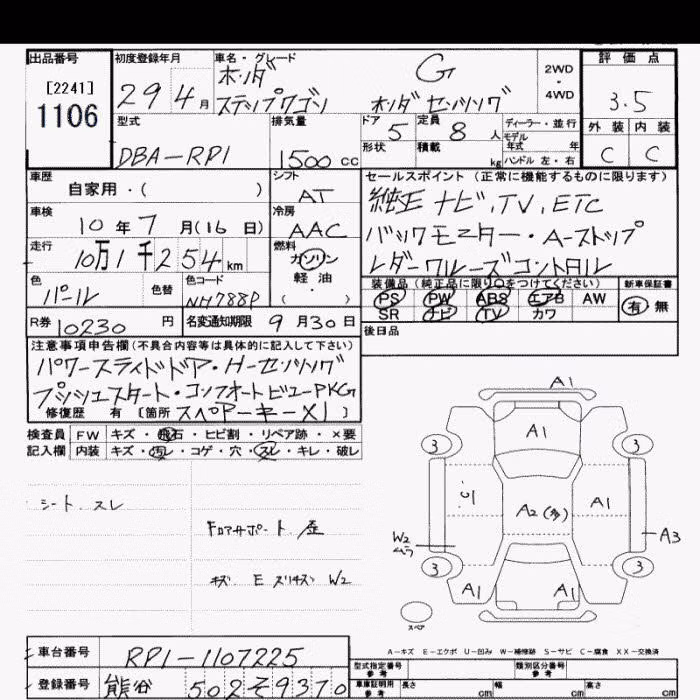 出品番号
[2241]
1106
初度登録年月
29 4月
車名・グレード
ホンダ G
ステップワゴン ホンダセンシング
2WD
・
4WD
評価点
3.5
外装 内装
C C
型式
DBA-RP1
排気量
1500cc
ドア 5
形状
定員 8人
積載 kg
ディーラー・並行
モデル
年式 年
ハンドル 左・右
車歴
自家用・( )
シフト
AT
セールスポイント (正常に機能するものに限ります)
純正ナビ、TV、ETC
バックモニター・A-ストップ
レダークルーズコントロル
車検
10年7月(16日)
冷房
AAC
走行
10万1千254km
燃料
ガソリン
軽油
( ・ )
色
パール
色替
色コード
NH788P
装備品(純正品に限り○をつけてください)
PS PW ABS エアB AW
SR ナビ TV カワ
新車保証書
有 無
R券 10230円
名変通知期限 9月30日
後日品
注意事項申告欄(不具合内容等は具体的に記入して下さい)
パワースライドドア・Hーセンシング
プッシュスタート・コンフォートビューPKG
修復歴 有 [箇所 スペアーキー×1 ]
検査員 FW キズ・飛石・ヒビ割・リペア跡・×要
記入欄 内装 キズ・汚レ・コゲ・穴・スレ・キレ・破レ
シート スレ
Fロアサポート 歪
キズ E スリキズ W2
A1
A1
3 3
A2(多)
A1
W2
ムラ
A3
3 3
A1 A1
スペア
A-キズ E-エクボ U-凹み W-補修跡 S-サビ C-腐食 XX-交換済
車台番号 RP1-1107225
登録番号 熊谷 502 そ 9370
型式指定番号
参考
類別区分番号
参考
車庫証明用
参考
長さ cm 幅 cm 高さ cm